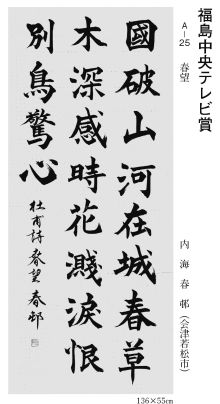 福島中央テレビ賞
A-25 春望
内海春邨(会津若松市)
國破山河在城春草
木深感時花濺淚恨
別鳥驚心
杜甫詩春望 春邨
136×55cm